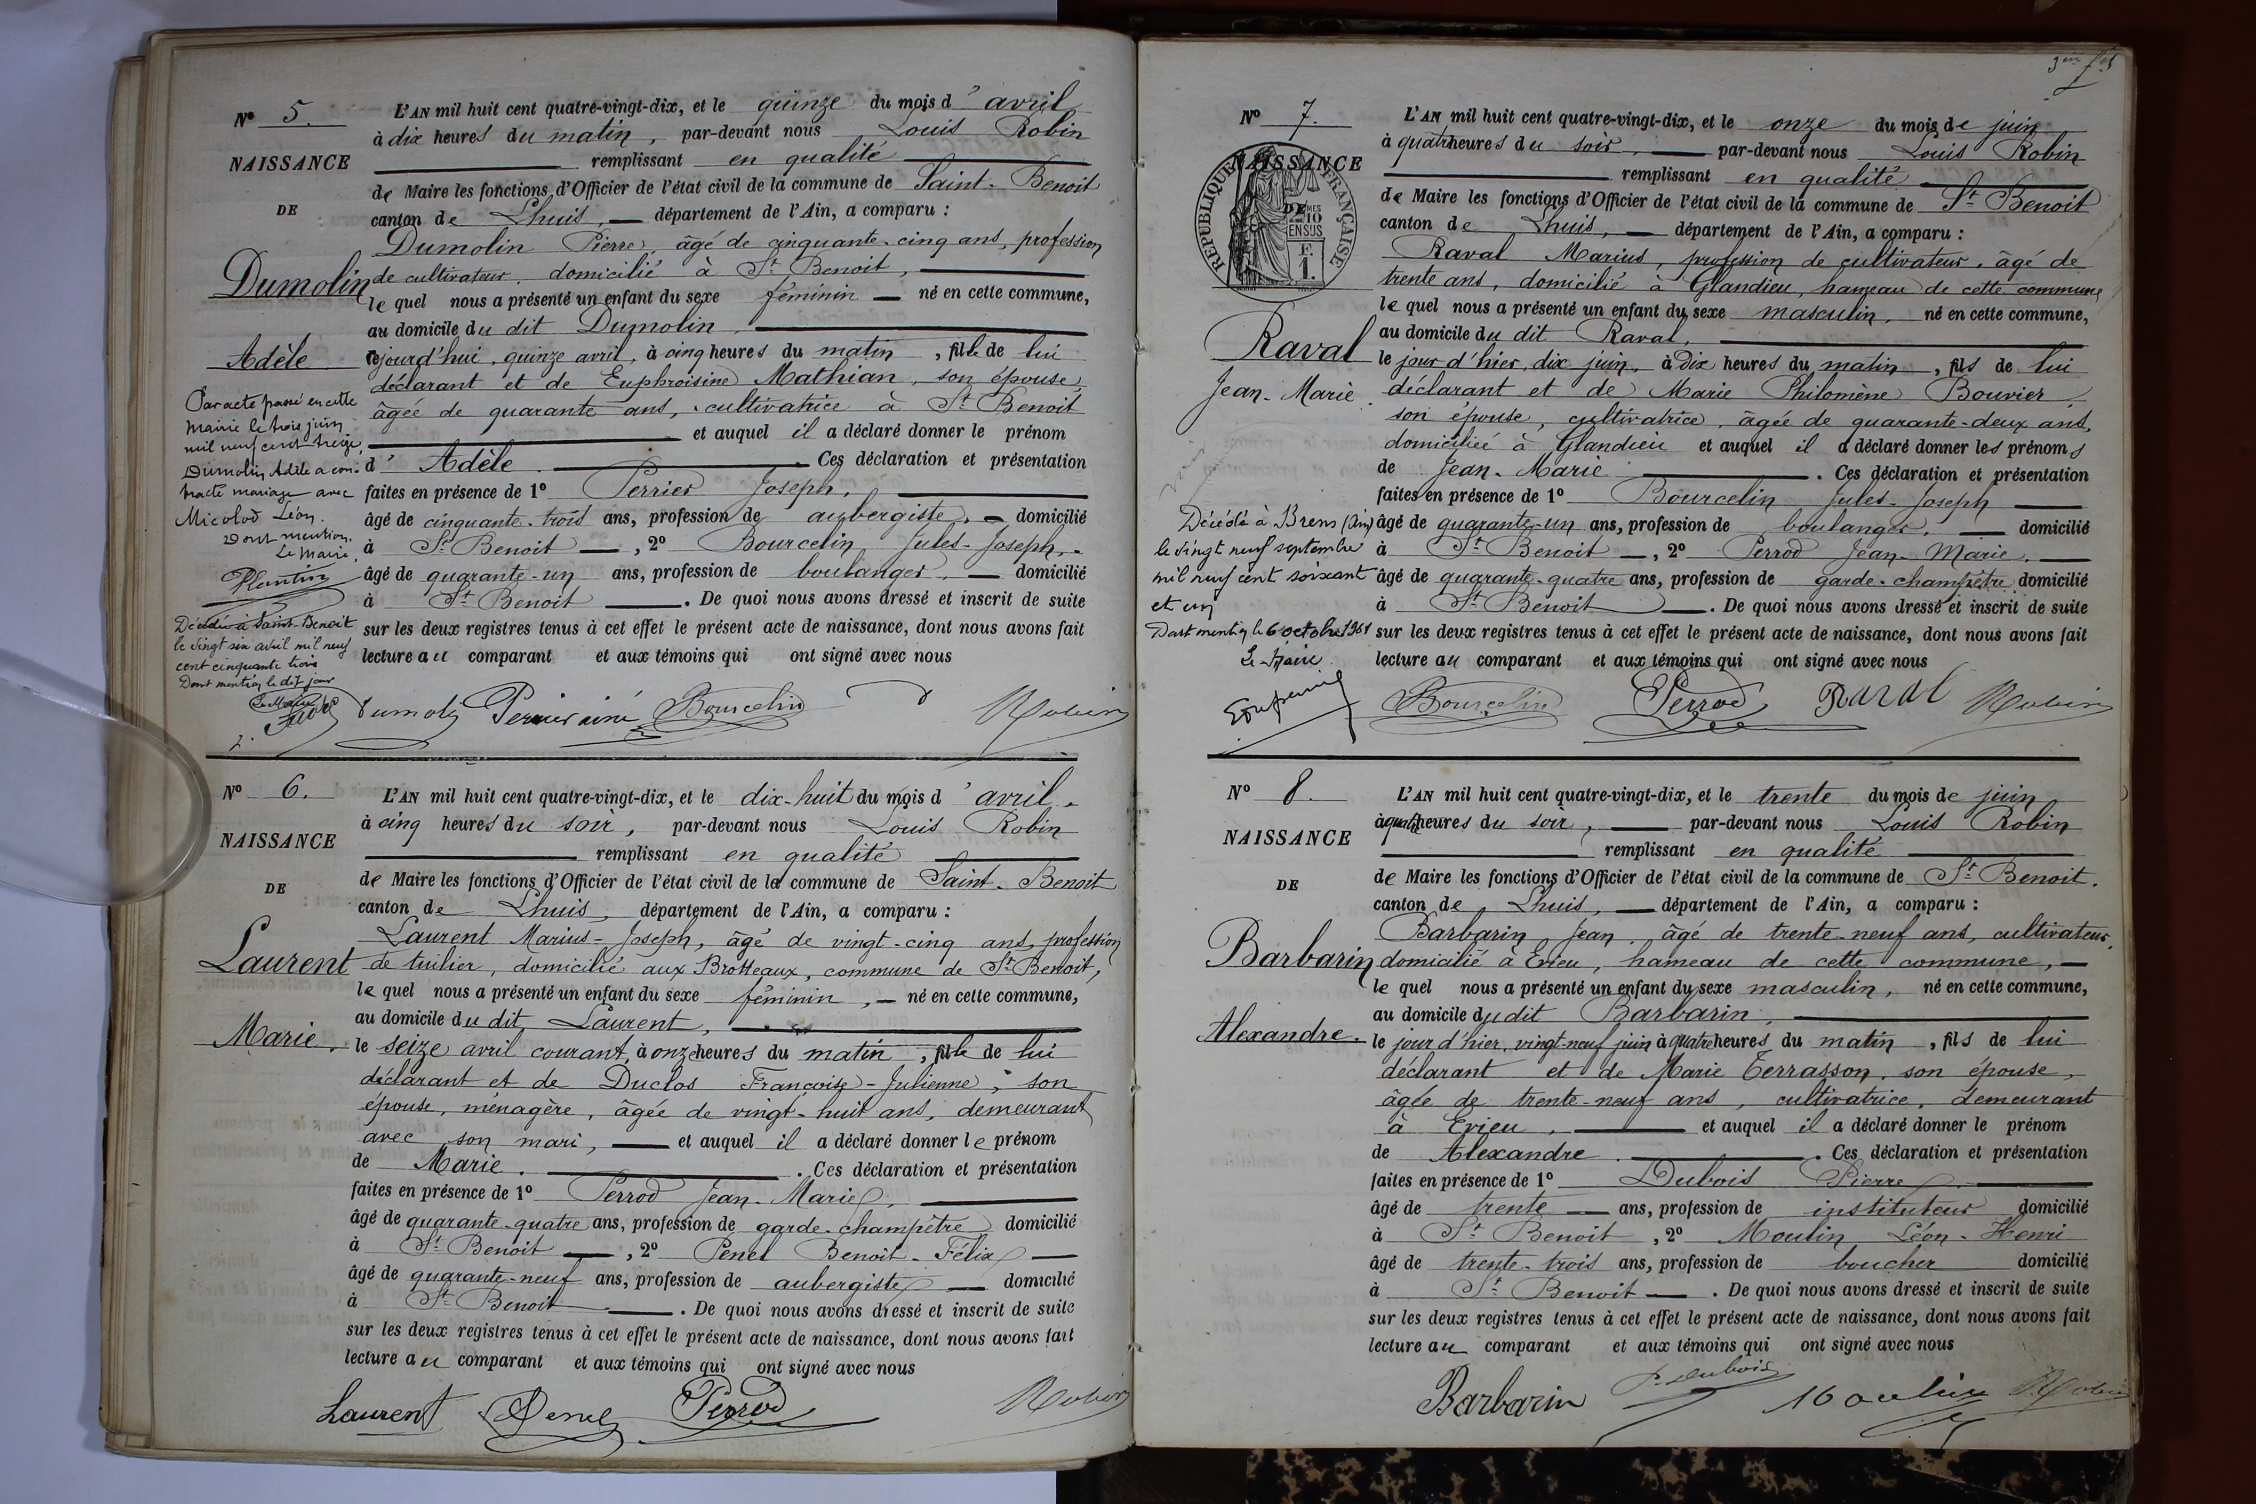 Nº 5.
NAISSANCE
DE
Dumolin
Adèle
Par acte passé en cette
mairie le trois juin
mil neuf cent treize,
Dumolin Adèle a con-
tracté mariage avec
Micolod Léon.
Dont mention.
Le Maire,
Décédée à Saint-Benoit
le vingt six avril mil neuf
cent cinquante trois
Dont mention le dit jour
Le Maire
L'AN mil huit cent quatre-vingt-dix, et le quinze du mois d'avril
à dix heures du matin, par-devant nous Louis Robin
remplissant en qualité
de Maire les fonctions d'Officier de l'état civil de la commune de Saint-Benoit
canton de Lhuis, département de l'Ain, a comparu :
Dumolin Pierre, âgé de cinquante-cinq ans, profession
de cultivateur, domicilié à St Benoit,
le quel nous a présenté un enfant du sexe féminin né en cette commune,
au domicile du dit Dumolin
cejourd'hui, quinze avril, à cinq heures du matin, fille de lui
déclarant et de Euphroisine Mathian, son épouse,
âgée de quarante ans, cultivatrice à St Benoit
et auquel il a déclaré donner le prénom
d'Adèle. Ces déclaration et présentation
faites en présence de 1º Perrier Joseph,
âgé de cinquante-trois ans, profession de aubergiste, domicilié
à St Benoit, 2º Bourcelin Jules-Joseph,
âgé de quarante-un ans, profession de boulanger, domicilié
à St Benoit. De quoi nous avons dressé et inscrit de suite
sur les deux registres tenus à cet effet le présent acte de naissance, dont nous avons fait
lecture au comparant et aux témoins qui ont signé avec nous
Dumolin Perrier ainé Bourcelin Robin
Nº 6.
NAISSANCE
DE
Laurent
Marie.
L'AN mil huit cent quatre-vingt-dix, et le dix-huit du mois d'avril,
à cinq heures du soir, par-devant nous Louis Robin
remplissant en qualité
de Maire les fonctions d'Officier de l'état civil de la commune de Saint-Benoit
canton de Lhuis, département de l'Ain, a comparu :
Laurent Marius-Joseph, âgé de vingt-cinq ans, profession
de tuilier, domicilié aux Brotteaux, commune de St Benoit,
le quel nous a présenté un enfant du sexe féminin, né en cette commune,
au domicile du dit Laurent,
le seize avril courant, à onze heures du matin, fille de lui
déclarant et de Duclos Françoise-Julienne, son
épouse, ménagère, âgée de vingt-huit ans, demeurant
avec son mari, et auquel il a déclaré donner le prénom
de Marie. Ces déclaration et présentation
faites en présence de 1º Perrod Jean-Marie,
âgé de quarante-quatre ans, profession de garde-champêtre domicilié
à St Benoit, 2º Penel Benoit-Félix
âgé de quarante-neuf ans, profession de aubergiste domicilié
à St Benoit. De quoi nous avons dressé et inscrit de suite
sur les deux registres tenus à cet effet le présent acte de naissance, dont nous avons fait
lecture au comparant et aux témoins qui ont signé avec nous
Laurent Penel Perrod Robin
Nº 7.
NAISSANCE
DE
RÉPUBLIQUE FRANÇAISE
2 DMES 10
EN SUS
F.
1.
Raval
Jean-Marie.
Décédé à Brens (Ain)
le vingt neuf septembre
mil neuf cent soixant
et un
Dont mention le 6 octobre 1961
Le Maire
L'AN mil huit cent quatre-vingt-dix, et le onze du mois de juin
à quatre heures du soir, par-devant nous Louis Robin
remplissant en qualité
de Maire les fonctions d'Officier de l'état civil de la commune de St Benoit
canton de Lhuis, département de l'Ain, a comparu :
Raval Marius, profession de cultivateur, âgé de
trente ans, domicilié à Glandieu, hameau de cette commune
le quel nous a présenté un enfant du sexe masculin, né en cette commune,
au domicile du dit Raval,
le jour d'hier, dix juin, à dix heures du matin, fils de lui
déclarant et de Marie Philomène Bouvier,
son épouse, cultivatrice, âgée de quarante-deux ans,
domiciliée à Glandieu et auquel il a déclaré donner les prénoms
de Jean-Marie. Ces déclaration et présentation
faites en présence de 1º Bourcelin Jules-Joseph
âgé de quarante-un ans, profession de boulanger, domicilié
à St Benoit, 2º Perrod Jean-Marie,
âgé de quarante-quatre ans, profession de garde-champêtre domicilié
à St Benoit. De quoi nous avons dressé et inscrit de suite
sur les deux registres tenus à cet effet le présent acte de naissance, dont nous avons fait
lecture au comparant et aux témoins qui ont signé avec nous
Bourcelin Perrod Raval Robin
Nº 8.
NAISSANCE
DE
Barbarin
Alexandre.
L'AN mil huit cent quatre-vingt-dix, et le trente du mois de juin
à quatre heures du soir, par-devant nous Louis Robin
remplissant en qualité
de Maire les fonctions d'Officier de l'état civil de la commune de St Benoit.
canton de Lhuis, département de l'Ain, a comparu :
Barbarin Jean, âgé de trente-neuf ans, cultivateur,
domicilié à Evieu, hameau de cette commune,
le quel nous a présenté un enfant du sexe masculin, né en cette commune,
au domicile du dit Barbarin,
le jour d'hier, vingt-neuf juin à quatre heures du matin, fils de lui
déclarant et de Marie Terrasson, son épouse,
âgée de trente-neuf ans, cultivatrice, demeurant
à Evieu, et auquel il a déclaré donner le prénom
de Alexandre. Ces déclaration et présentation
faites en présence de 1º Dubois Pierre,
âgé de trente ans, profession de instituteur domicilié
à St Benoit, 2º Moulin Léon-Henri
âgé de trente-trois ans, profession de boucher domicilié
à St Benoit. De quoi nous avons dressé et inscrit de suite
sur les deux registres tenus à cet effet le présent acte de naissance, dont nous avons fait
lecture au comparant et aux témoins qui ont signé avec nous
Barbarin P. Dubois Moulin Robin